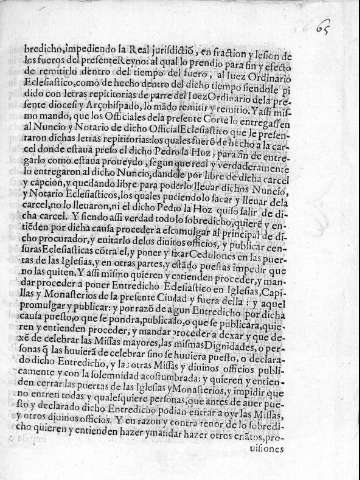 65
bredicho, impediendo la Real jurisdictiõ, en fraction y lesion de
los fueros del presente Reyno: al qual lo prendio para fin y efecto
de remitirlo dentro del tiempo del fuero, al Iuez Ordinario
Eclesiastico, como de hecho dentro del dicho tiempo siendole pi
dido con letras repititorias de parte del Iuez Ordinario de la pre-
sente diocesi y Arçobispado, lo mãdo remitir y remitio. Y assi mis-
mo mando, que los Officiales de la presente Corte lo entregassen
al Nuncio y Notario de dicho Official Eclesiastico que le presen-
taron dichas letras repititorias: los quales fuerõ de hecho a la car-
cel donde estaua preso el dicho Pedro la Hoz, para fin de entre-
garlo como estaua proueydo, segun que real y verdaderamente
lo entregaron al dicho Nuncio, dandole por libre de dicha carcel
y capcion, y quedando libre para poderlo lleuar dichos Nuncio,
y Notario Eclesiasticos, los quales pudiendolo sacar y lleuar de la
carcel, no lo lleuaron, ni el dicho Pedro la Hoz quiso salir de di-
cha carcel. Y siendo assi verdad todo lo sobredicho, quieré y en-
tiéden por dicha causa proceder a excomulgar al principal de di-
cho procurador, y euitarlo de los diuinos officios, y publicar cen-
suras Eclesiasticas cotra el, y poner y fixar Cedulones en las puer-
tas de las Iglesias, y en otras partes, y estãdo puestas impidir que
no las quiten. Y assi mismo quieren y entienden proceder, y man-
dar proceder a poner Entredicho Eclesiastico en Iglesias, Capi-
llas y Monasterios de la presente Ciudad y fuera della: y aquel
promulgar y publicar: y por razõ de algun Entredicho por dicha
causa puesto, o que se pondra, publicado, o que se publicara, quie-
ren y entienden proceder, y mandar proceder a dexar y que de-
xé de celebrar las Missas mayores, las mismas Dignidades, o per-
sonas q̃ las huuierã de celebrar sino se huuiera puesto, o declara-
do dicho Entredicho, y las otras Missas y diuinos officios publi-
camente y con la solemnidad acostumbrada: y quieren y entien-
den cerrar las puertas de las Iglesias y Monasterios, y impidir que
no entren todas y qualesquiere personas, que antes de auer pue-
sto y declarado dicho Entredicho podian entrar a oyr las Missas,
y otros diuinos officios. Y en razon y contra tenor de lo sobredi-
cho quieren y entienden hazer y mandar hazer otros enãtos, pro-
uisiones